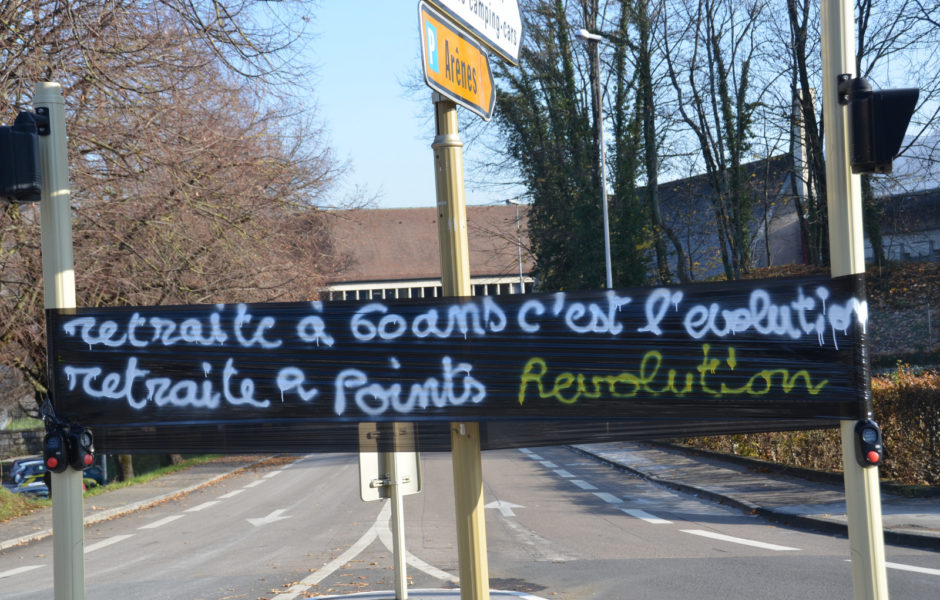 camping-cars
P Arènes
retraite à 60 ans c'est l'evolution
retraite a Points Revolution